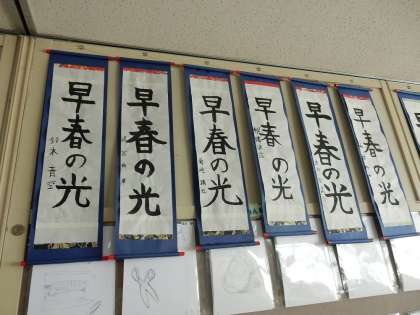 早春の光
早春の光
早春の光
早春の光
早春の光
早春の光